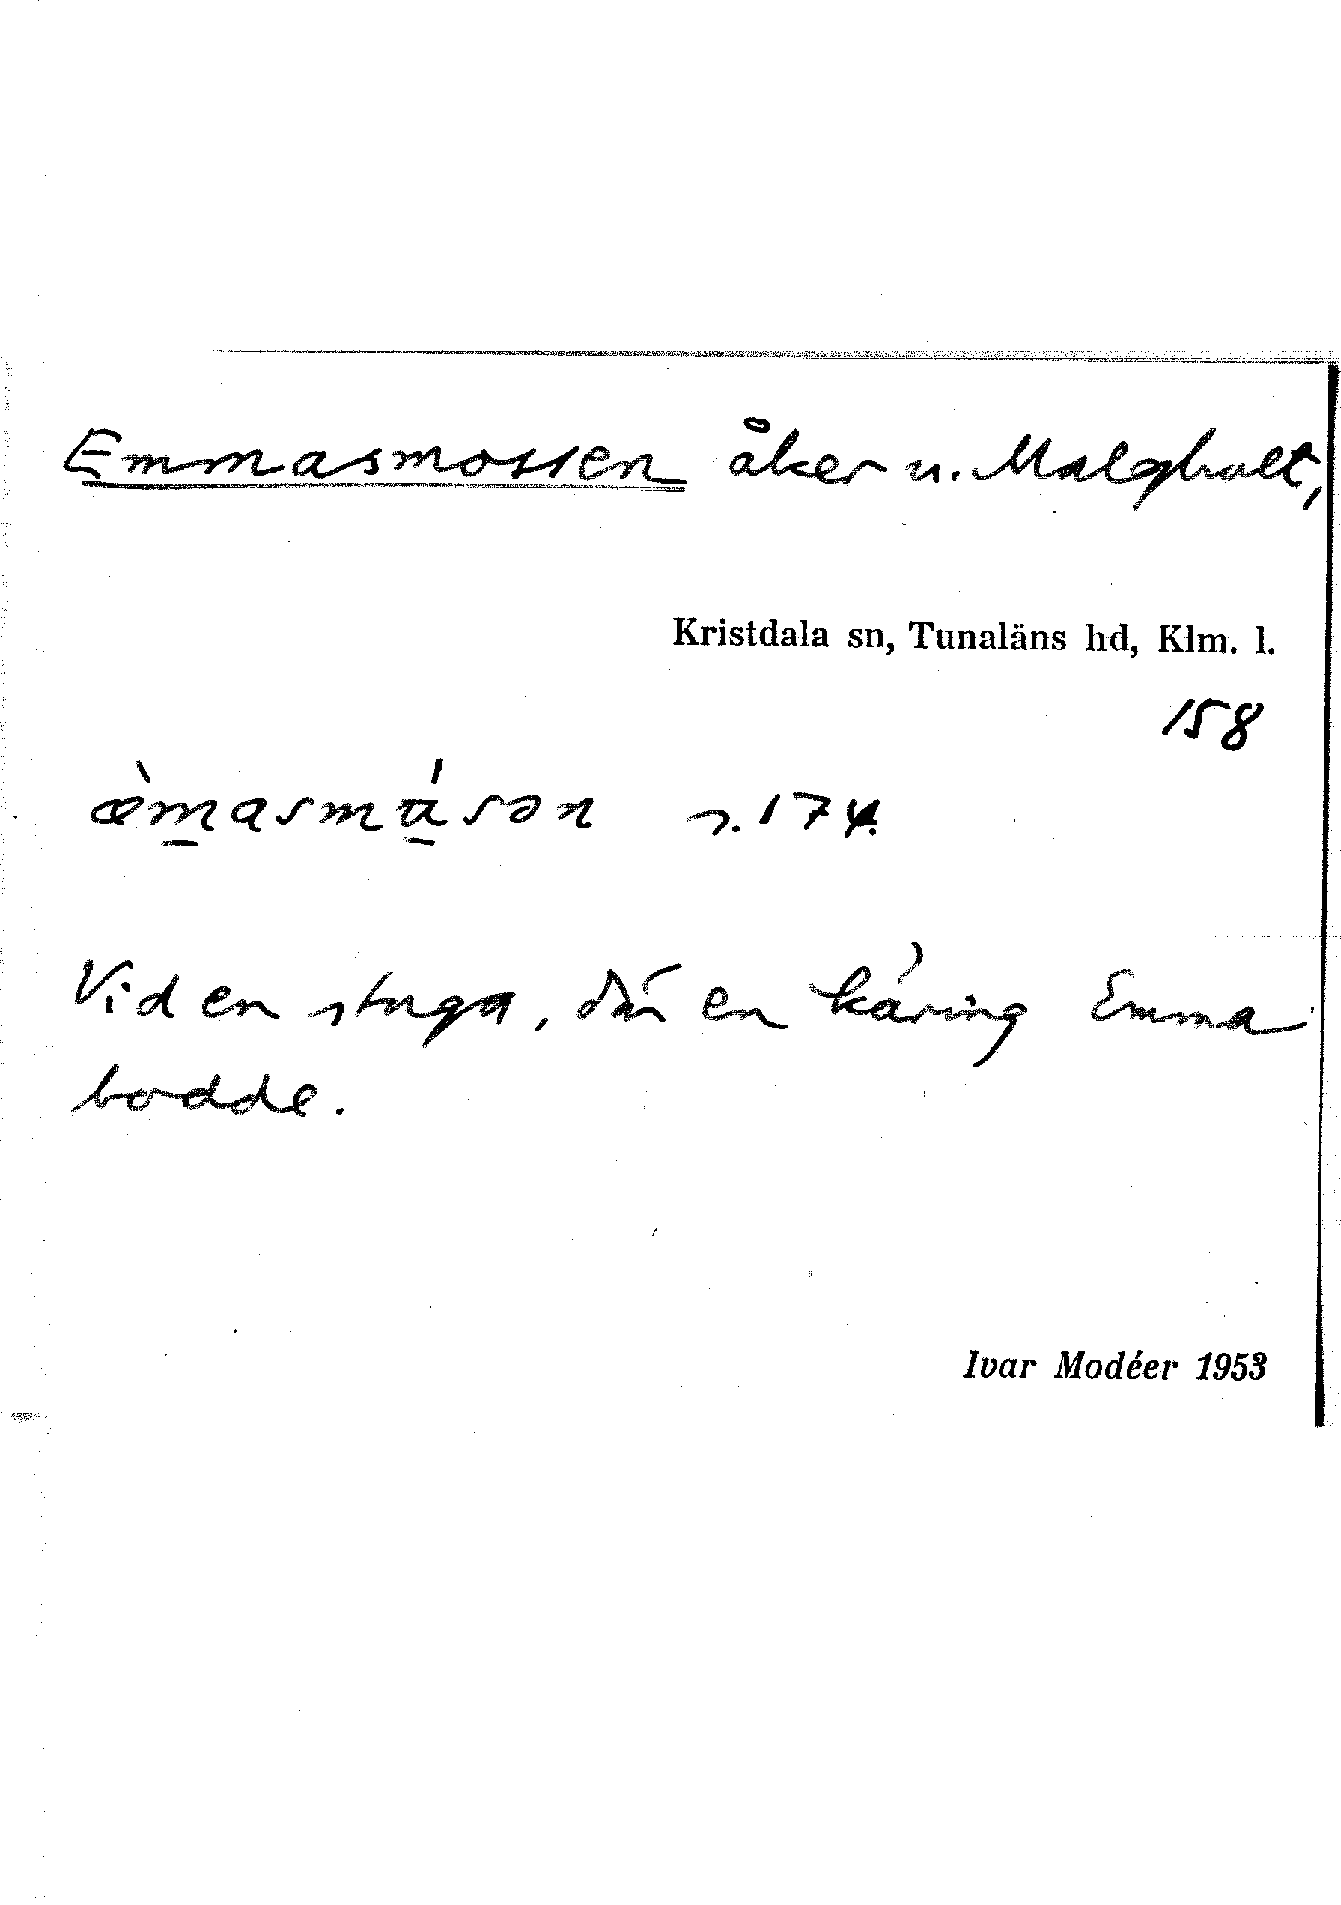 Emmasmossen åker n. Malghult,
Kristdala sn, Tunaläns hd, Klm. l.
158
s. 174.
Vid en stuga, där en käring Emma
bodde.
Ivar Modéer 1953